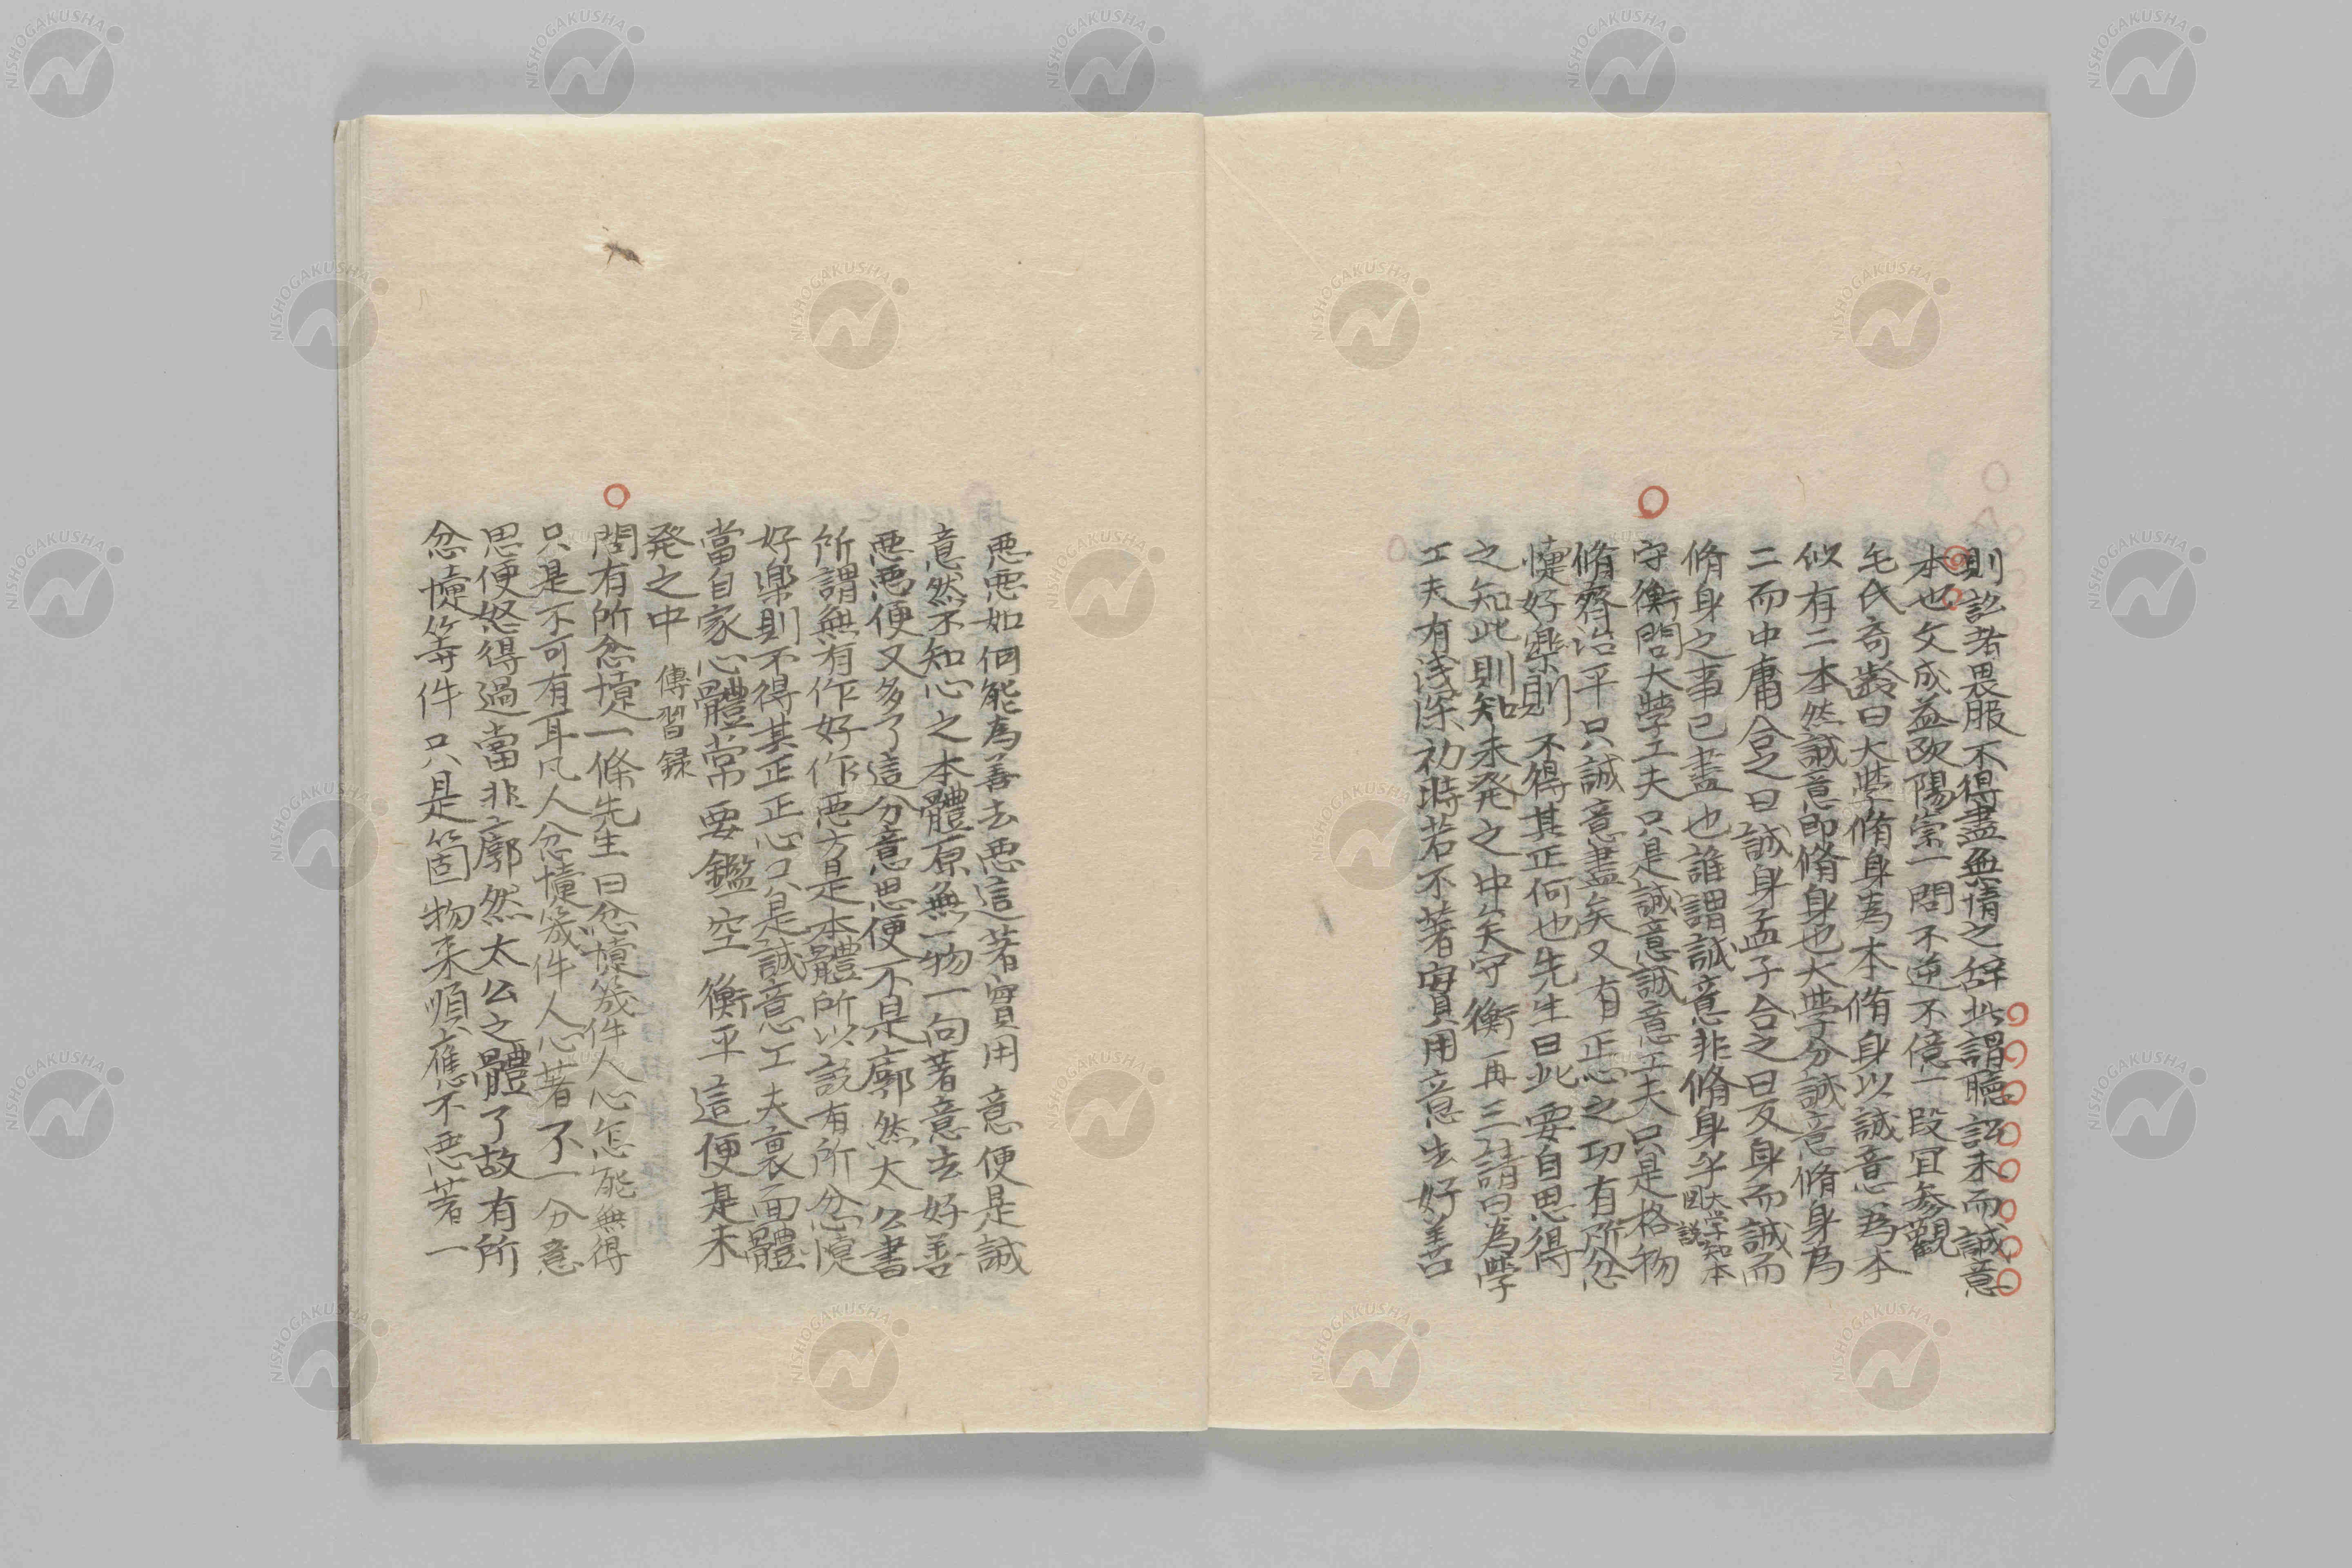 則訟者畏服不得盡無情之辞此謂聽訟末而誠意
本也文成益欧陽崇一問不逆不億一段冝参觀
毛氏奇齢曰大学脩身為本脩身以誠意為本
似有二本然誠意即脩身也大学分誠意脩身為
二而中庸合之曰誠身孟子合之曰反身而誠而
脩身之事已盡也誰謂誠意非脩身乎大学知本図説
守衡問大学工夫只是誠意誠意工夫只是格物
脩齊治平只誠意盡矣又有正心之功有所忿
懥好樂則不得其正何也先生曰此要自思得
之知此則知未発之中矣守衡再三請曰為学
工夫有浅深初時若不著實用意去好善
悪悪如何能為善去悪這著實用意便是誠
意然不知心之本體原無一物一句著意去好善
悪悪便又多了這分意思便不是廓然太公書
所謂無有作好作悪方是本體所以説有所忿懥
好楽則不得其正正心只是誠意工夫裏面體
當自家心體常要鑑空衡平這便是未
発之中 傳習録
問有所忿懥一條先生曰忿懥幾件人心怎能無得
只是不可有耳凡人忿懥幾件人心著不一分意
思便怒得過當非廓然太公之體了故有所
忿懥等件只是箇物来順應不悪著一
NISHOGAKUSHA